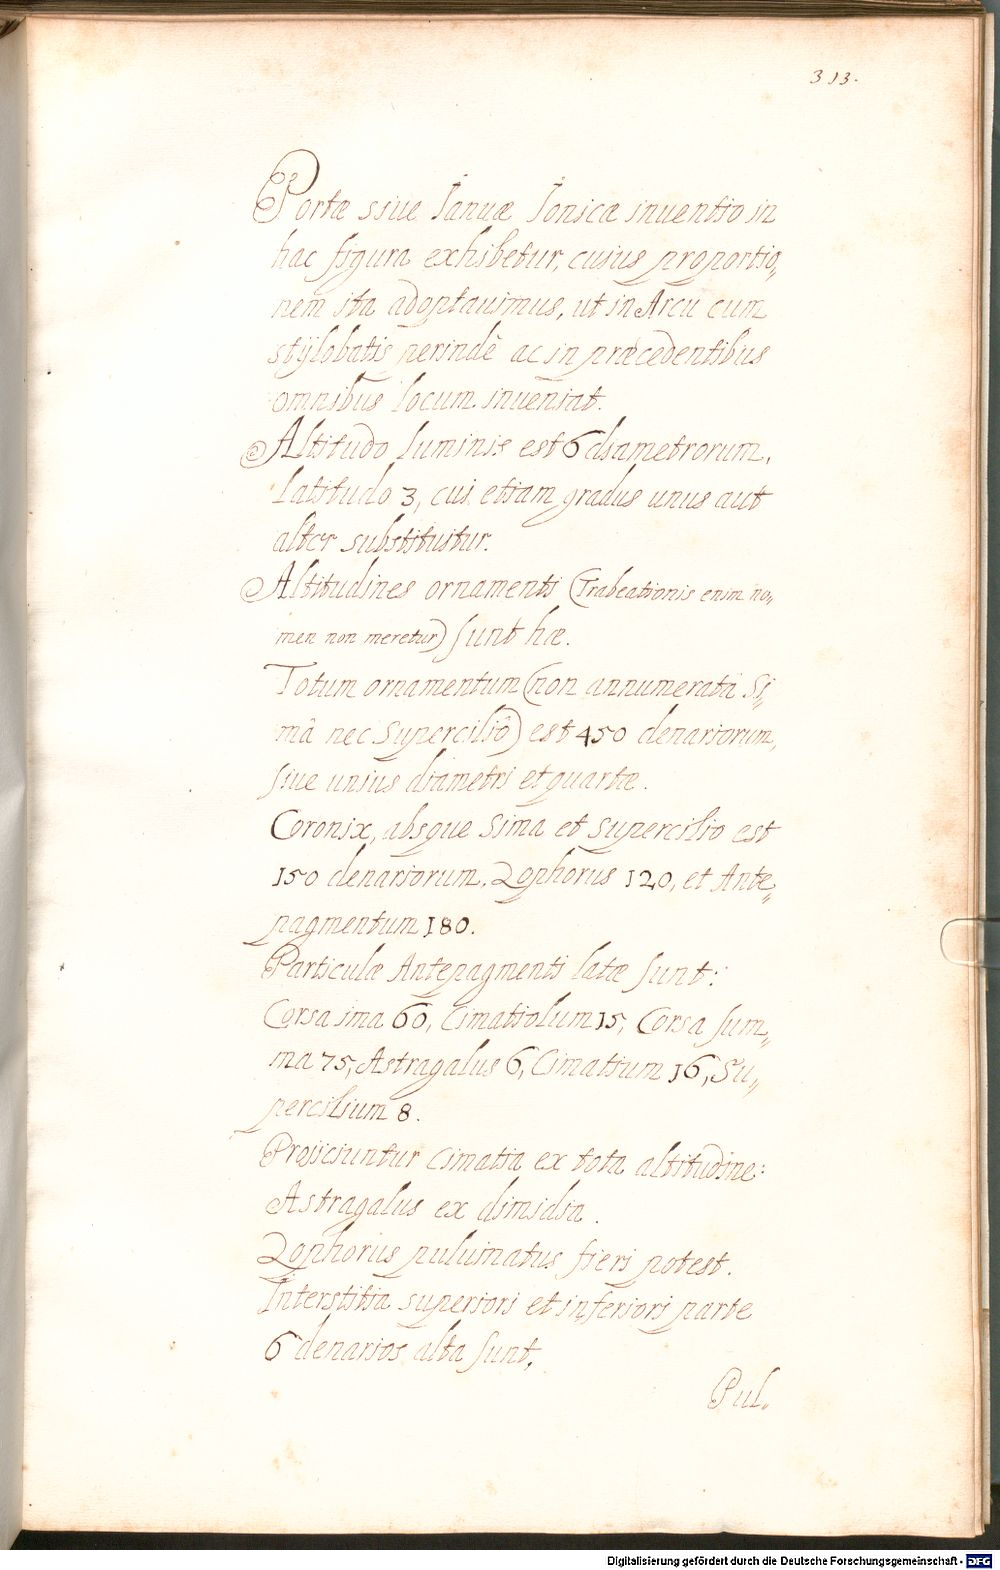 313.
Portæ siue Januæ Jonicæ inuentio in
hac figura exhibetur, cuius proportio„
nem ita adoptauimus, ut in Arcu cum
stÿlobatis perindè ac in præcedentibus
omnibus locum inueniat.
Altitudo luminis est 6 diametrorum,
latitudo 3, cui etiam gradus unus aut
alter substituitur.
Altitudines ornamenti (Trabeationis enim no„
men non meretur) sunt hæ.
Totum ornamentum (non annumerata Si„
mâ nec Supercilio) est 450 denariorum,
siue unius diametri et quartæ.
Coronix, absque Sima et Supercilio est
150 denariorum. Zophorus 120, et Ante„
pagmentum 180.
Particulæ Antepagmenti latæ sunt:
Corsa ima 60, Cimatiolum 15, Corsa sum„
ma 75, Astragalus 6, Cimatium 16, Su„
percilium 8.
Projiciuntur Cimatia ex tota altitudine:
Astragalus ex dimidia.
Zophorus puluinatus fieri potest.
Interstitia superiori et inferiori parte
6 denarios alta sunt.
Pul.
Digitalisierung gefördert durch die Deutsche Forschungsgemeinschaft - DFG